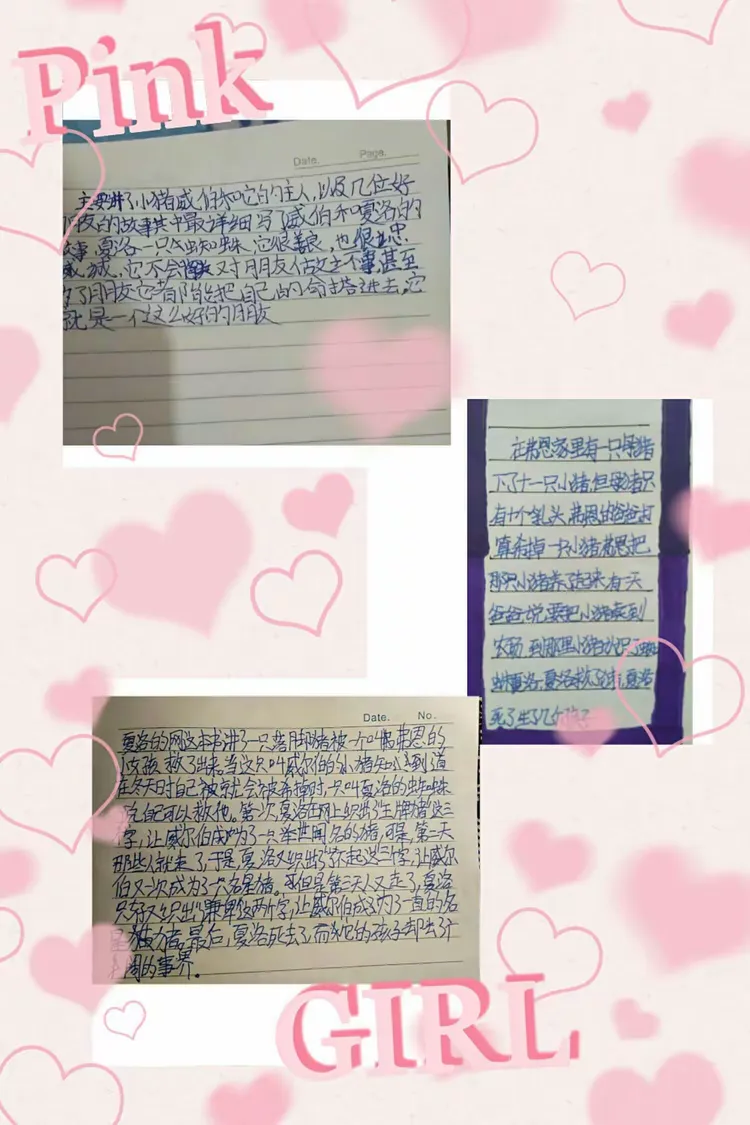 Pink
Date. Page.
主要讲了小猪威伯和它的主人,以及几位好
朋友的故事其中最详细写了威伯和夏洛的
故事,夏洛一只蜘蛛,它很善良,也很忠
诚,它不会对朋友做这不事,甚至
为了朋友它有可能把自己的命搭进去,它
就是一个这么好的朋友
在弗恩家里有一只母猪
下了十一只小猪,但母猪只
有十个乳头,弗恩的爸爸打
算杀掉一只小猪弗恩把
那只小猪养了起来有一天
爸爸说要把小猪卖到
农场,到那里小猪认识了蜘
蛛夏洛,夏洛救了猪,夏洛
死了生了几个孩子
Date. No.
夏洛的网这本书讲了一只落脚猪被一个叫弗恩的
小女孩救了出来。当这只叫威尔伯的小猪知道
在冬天时自己就会被杀掉时,一只叫夏洛的蜘蛛
说自己可以救他。第一次,夏洛在网上织出了“王牌猪”这三
字,让威尔伯成为了一只举世闻名的猪,可是,第二天
那些人就走了,于是夏洛又织出了“了不起”这三个字,让威尔
伯又一次成为了一只名星猪。但是第三天人又走了,夏洛
只有又织出“谦卑”这两个字,让威尔伯成了为了一直的名
猪。最后,夏洛死去了,而她的孩子却出了
的事界。
GIRL